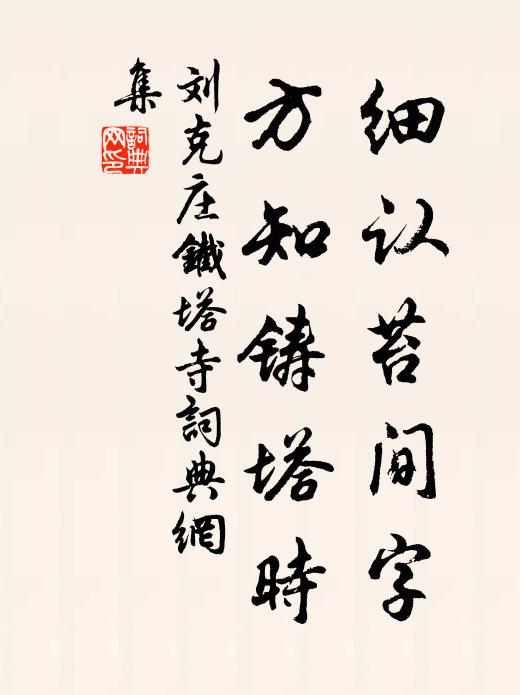 细认苔间字
方知铸塔時
刘克庄鐵塔寺詞典網
集
詞典
网印